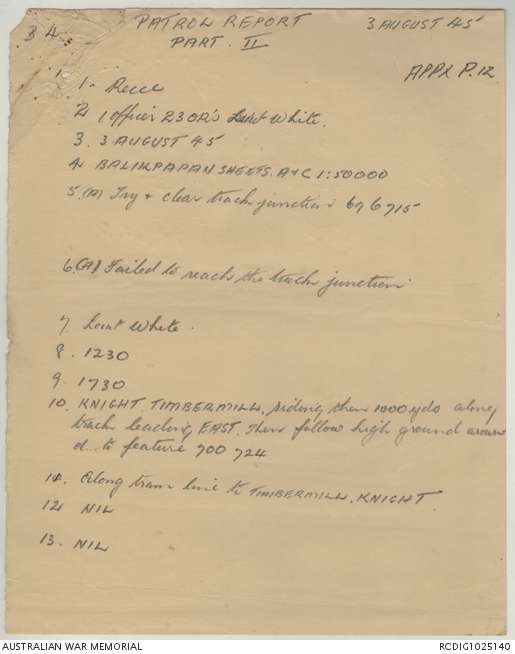 34.
PATROL REPORT
3 AUGUST 45
PART. II
APPX P.12
1. Recce
2. 1 officer 23 OR's Lieut White.
3. 3 AUGUST 45
4. BALIKPAPAN SHEETS. A & C 1:50000
5. (A) Try & clear track junction 696715
6. (A) Failed to reach the track junction
7. Lieut White.
8. 1230
9. 1730
10. KNIGHT, TIMBERMILL, siding then 1000 yds along
track leading EAST. Then follow high ground around
to feature 700724
11. Along tram line to TIMBERMILL, KNIGHT.
12. NIL
13. NIL
AUSTRALIAN WAR MEMORIAL
RCDIG1025140